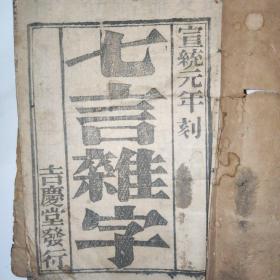 宣統元年刻
七言雜字
吉慶堂發行